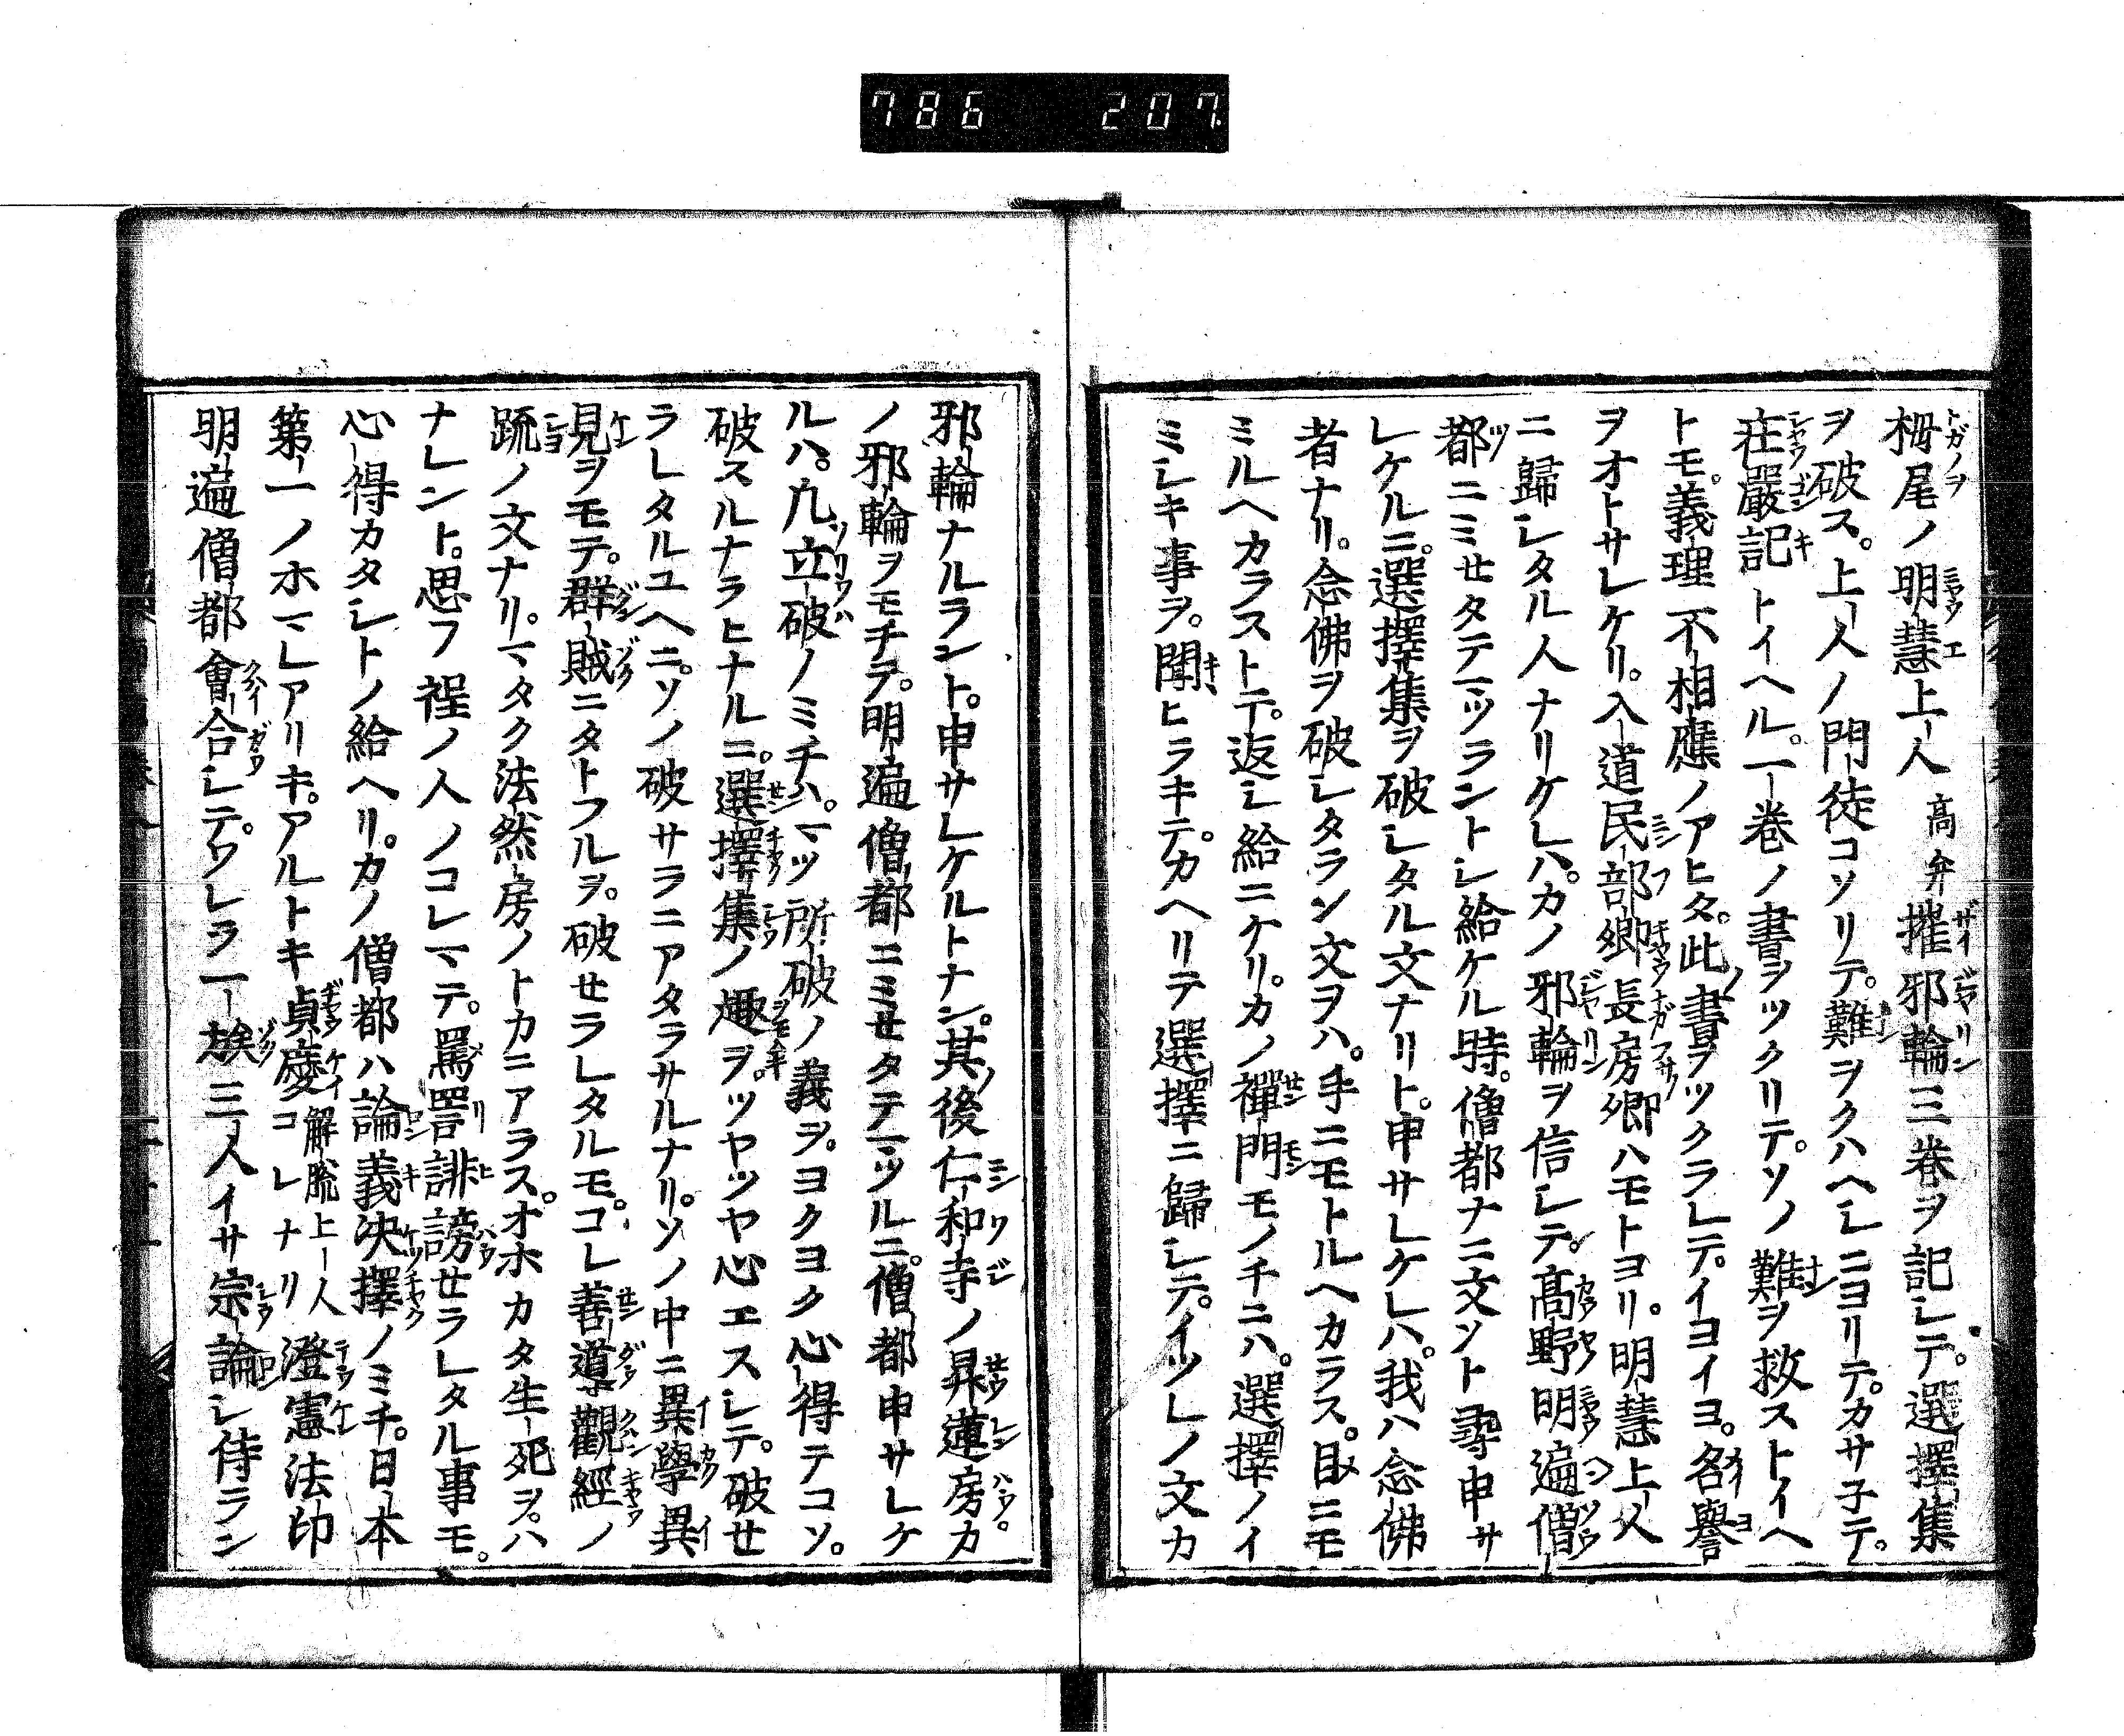 786 207
栂尾ノ明慧上人高弁摧邪輪三巻ヲ記シテ。選擇集
ヲ破ス。上人ノ門徒コソリテ。難ヲクハヘシニヨリテ。カサ子テ。
荘嚴記トイヘル。一巻ノ書ヲツクリテ。ソノ難ヲ救ストイヘ
トモ。義理不相應ノアヒタ。此書ヲツクラレテ。イヨイヨ。各譽
ヲオトサレケリ。入道民部卿長房卿ハモトヨリ。明慧上人
ニ歸シタル人ナリケレハ。カノ邪輪ヲ信シテ。髙野明遍僧
都ニミせタテマツラントシ給ケル時。僧都ナニ文ソト尋申サ
レケルニ。選擇集ヲ破シタル文ナリト。申サレケレハ。我ハ念佛
者ナリ。念佛ヲ破シタラン文ヲハ。手ニモトルヘカラス。目ニモ
ミルヘカラストテ。返シ給ニケリ。カノ禪門モノチニハ。選擇ノイ
ミシキ事ヲ。聞ヒラキテ。カヘリテ選擇ニ歸シテ。イツレノ文カ
邪輪ナルラント。申サレケルトナン。其後仁和寺ノ昇蓮房カ
ノ邪輪ヲモチテ。明遍僧都ニミせタテマツルニ。僧都申サレケ
ルハ。凡立破ノミチハ。マツ所破ノ義ヲ。ヨクヨク心得テコソ。
破スルナラヒナルニ。選擇集ノ趣ヲ。ツヤツヤ心エスシテ。破せ
ラレタルユヘニ。ソノ破サラニアタラサルナリ。ソノ中ニ異學異
見ヲモテ。群賊ニタトフルヲ。破せラレタルモ。コレ善導觀經ノ
䟽ノ文ナリ。マタク法然房ノトカニアラス。オホカタ生死ヲハ
ナレント。思フ程ノ人ノコレマテ。罵詈誹謗せラレタル事モ。
心得カタシトノ給ヘリ。カノ僧都ハ論義決擇ノミチ。日本
第一ノホマレアリキ。アルトキ貞慶解脱上人コレナリ澄憲法印
明遍僧都會合シテ。ワレラ一族三人イサ宗論シ侍ラン